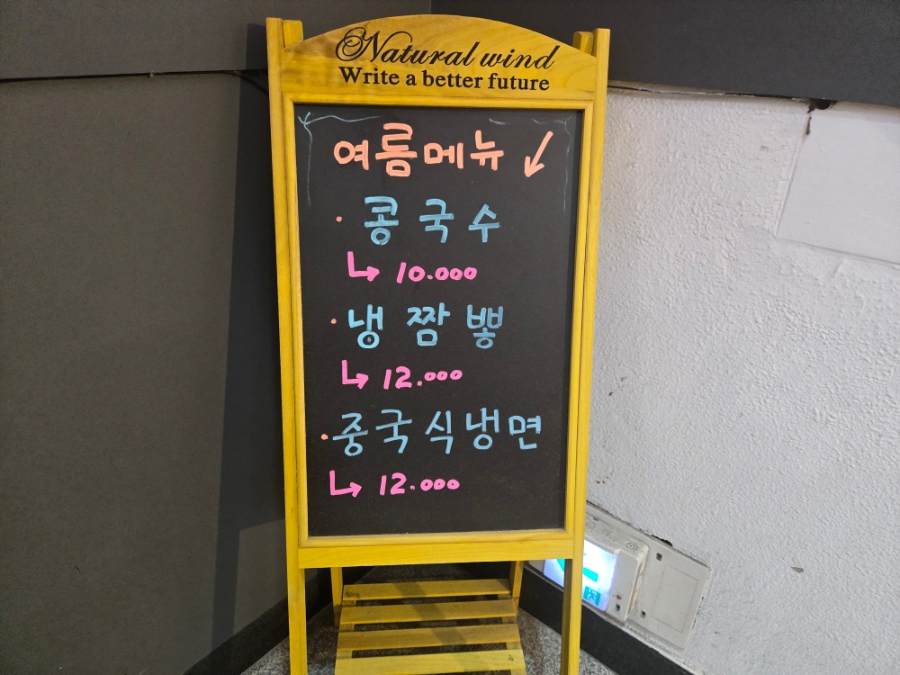 Natural wind
Write a better future
여름메뉴 ↙
· 콩국수
↳ 10.000
· 냉짬뽕
↳ 12.000
· 중국식냉면
↳ 12.000